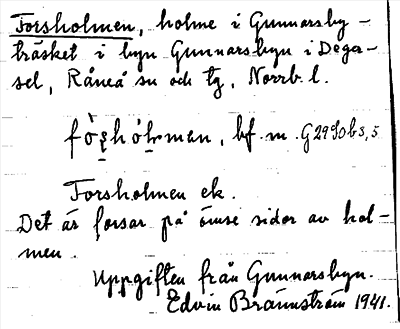 Forsholmen, holme i Gunnarsby-
träsket i byn Gunnarsbyn i Dega-
sel, Råneå sn och tg, Norrb. l.
fò̀ʂhòlmen, bf. m. G29SO b 5,5
Forsholmen ek.
Det är forsar på ömse sidor av hol-
men.
Uppgiften från Gunnarsbyn.
Edvin Brännström 1941.